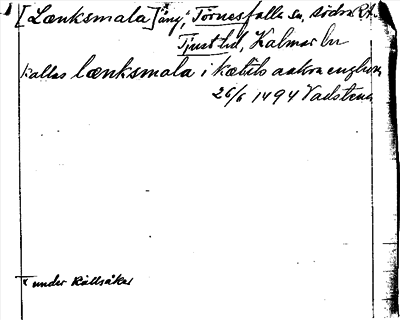 [Lænksmala] äng, Törnesfalla sn, södra RA.
Tjust hd, Kalmar ln
kallas lænksmala i kætils aakra
26/6 1494 Vadstena
under Källsåker